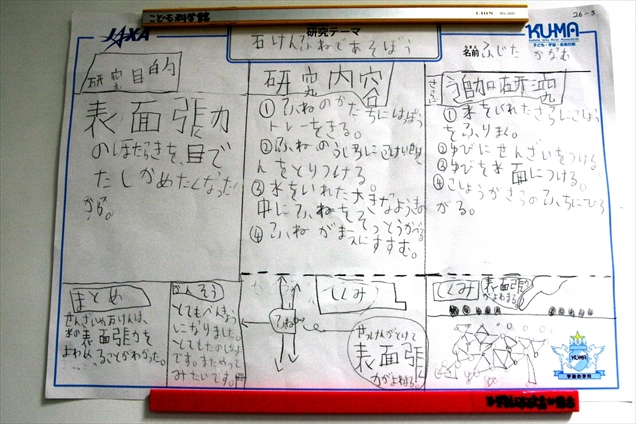 こどもる科学館
26-3
JAXA
研究テーマ
石けんふねであそぼう
KUMA
子ども・宇宙・未来の会
名前 ふじた かなむ
研究目的
表面張力
のはたらきを、目で
たしかめたくなった
から。
研究内容
① ふねのかたちにはっぽう
トレーをきる。
② ふねのうしろに
んをとりつける。
③ 水をいれた大きな
中にふねを
④ ふねがまえに
すすむ。
追加研究
① 水をいれたさらにこしょう
をふりまく。
② ゆびにせんざいをつける
③ ゆびを水面につける。
④ こしょうがさらのふちにひろ
がる。
まとめ
せんざいや石けんは、
水の表面張力を
よわめることがわかった。
かんそう
とてもべんきょう
になりました。
とてもたのしかった
です。またやって
みたいです。
しくみ
ふね
せっけんがとけて
表面張
力がよわまる!
しくみ
表面張力
がよわまる
KUMA
宇宙の学校